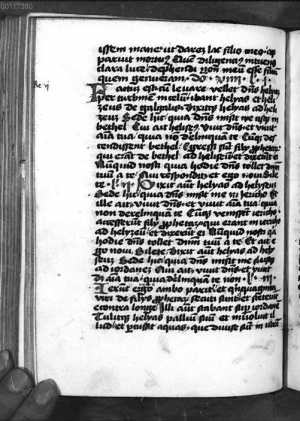 00117380
essem mane ut darem lac filio meo ap
paruit mortuus Que diligencius intuens
clara luce dephendi non meu esse filiu
quem genueram
Re vj
Factu est cu levare vellet dns helya
per turbinem in celu ibant helyas et heli
zeus de galgalis dixitqz helyas ad heli
zeu Sede hic quia dns misit me usqz in
bethel Cui ait helise vivit dns et vivit
aia tua quia no derelinqua te Cuqz des
cendissent bethel Egressi sut filij prophetaz
qui erat de bethel ad heliseu et dixerut ei
Nuquid nosti quia hodie dns tollet dnm
tuu a te Qui respondit et ego novi Sile
te Dixit aut helyas ad heliseu
Sede hic quia dns misit me in jericho Et
ille ait vivit dns et vivit aia tua quia
non derelinqua te Cuqz venisset iericho
accesserut filij prophetaz qui erant in iericho
ad helyzeu et dixerut ei Nuquid nosti qa
hodie dns tollet dnm tuu a te Et ait e
go novi Silete Dixit aut helyas ad hely
seu Sede hic quia dns misit me usqz
ad iordanem Qui ait vivit dns et vivit
aia tua quia no derelinqua te
Ierut igitr ambo pariter et qnquaginta
viri de filijs prophetaz secuti sunt et steterut
econtra longe Illi aut stabant sup iordane
Tulitqz helyas palliu suu et involvit il
lud et pcussit aquas que divise sut in utraqz